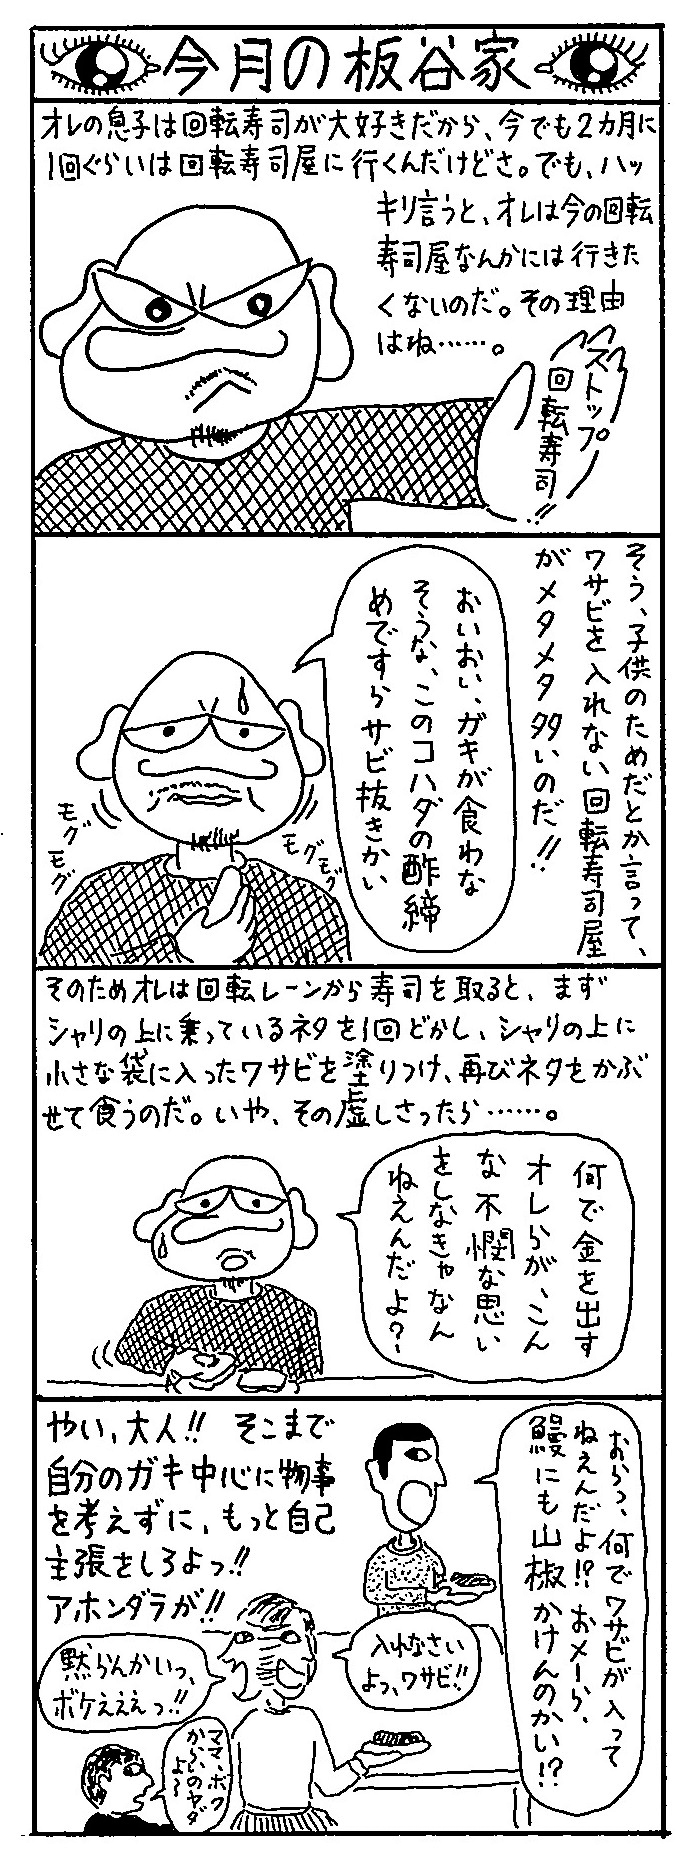 今月の板谷家
オレの息子は回転寿司が大好きだから、今でも2カ月に
1回ぐらいは回転寿司屋に行くんだけどさ。でも、ハッ
キリ言うと、オレは今の回転
寿司屋なんかには行きた
くないのだ。その理由
はね……。
ストップ
回転寿司!!
そう、子供のためだとか言って、
ワサビを入れない回転寿司屋
がメタメタ多いのだ!!
おいおい、ガキが食わな
そうな、このコハダの酢締
めですらサビ抜きかい
モグ
モグ
モグ
モグ
そのためオレは回転レーンから寿司を取ると、まず
シャリの上に乗っているネタを1回どかし、シャリの上に
小さな袋に入ったワサビを塗りつけ、再びネタをかぶ
せて食うのだ。いや、その虚しさったら……。
何で金を出す
オレらが、こん
な不憫な思い
をしなきゃなん
ねえんだよ?
やい、大人!! そこまで
自分のガキ中心に物事
を考えずに、もっと自己
主張をしろよっ!!
アホンダラが!!
おらっ、何でワサビが入って
ねえんだよ!? おメーら、
鰻にも山椒かけんのかい!?
入れなさい
よっ、ワサビ!!
黙らんかいっ、
ボケえええっ!!
ママ、ボク
からいのヤダ
よ〜